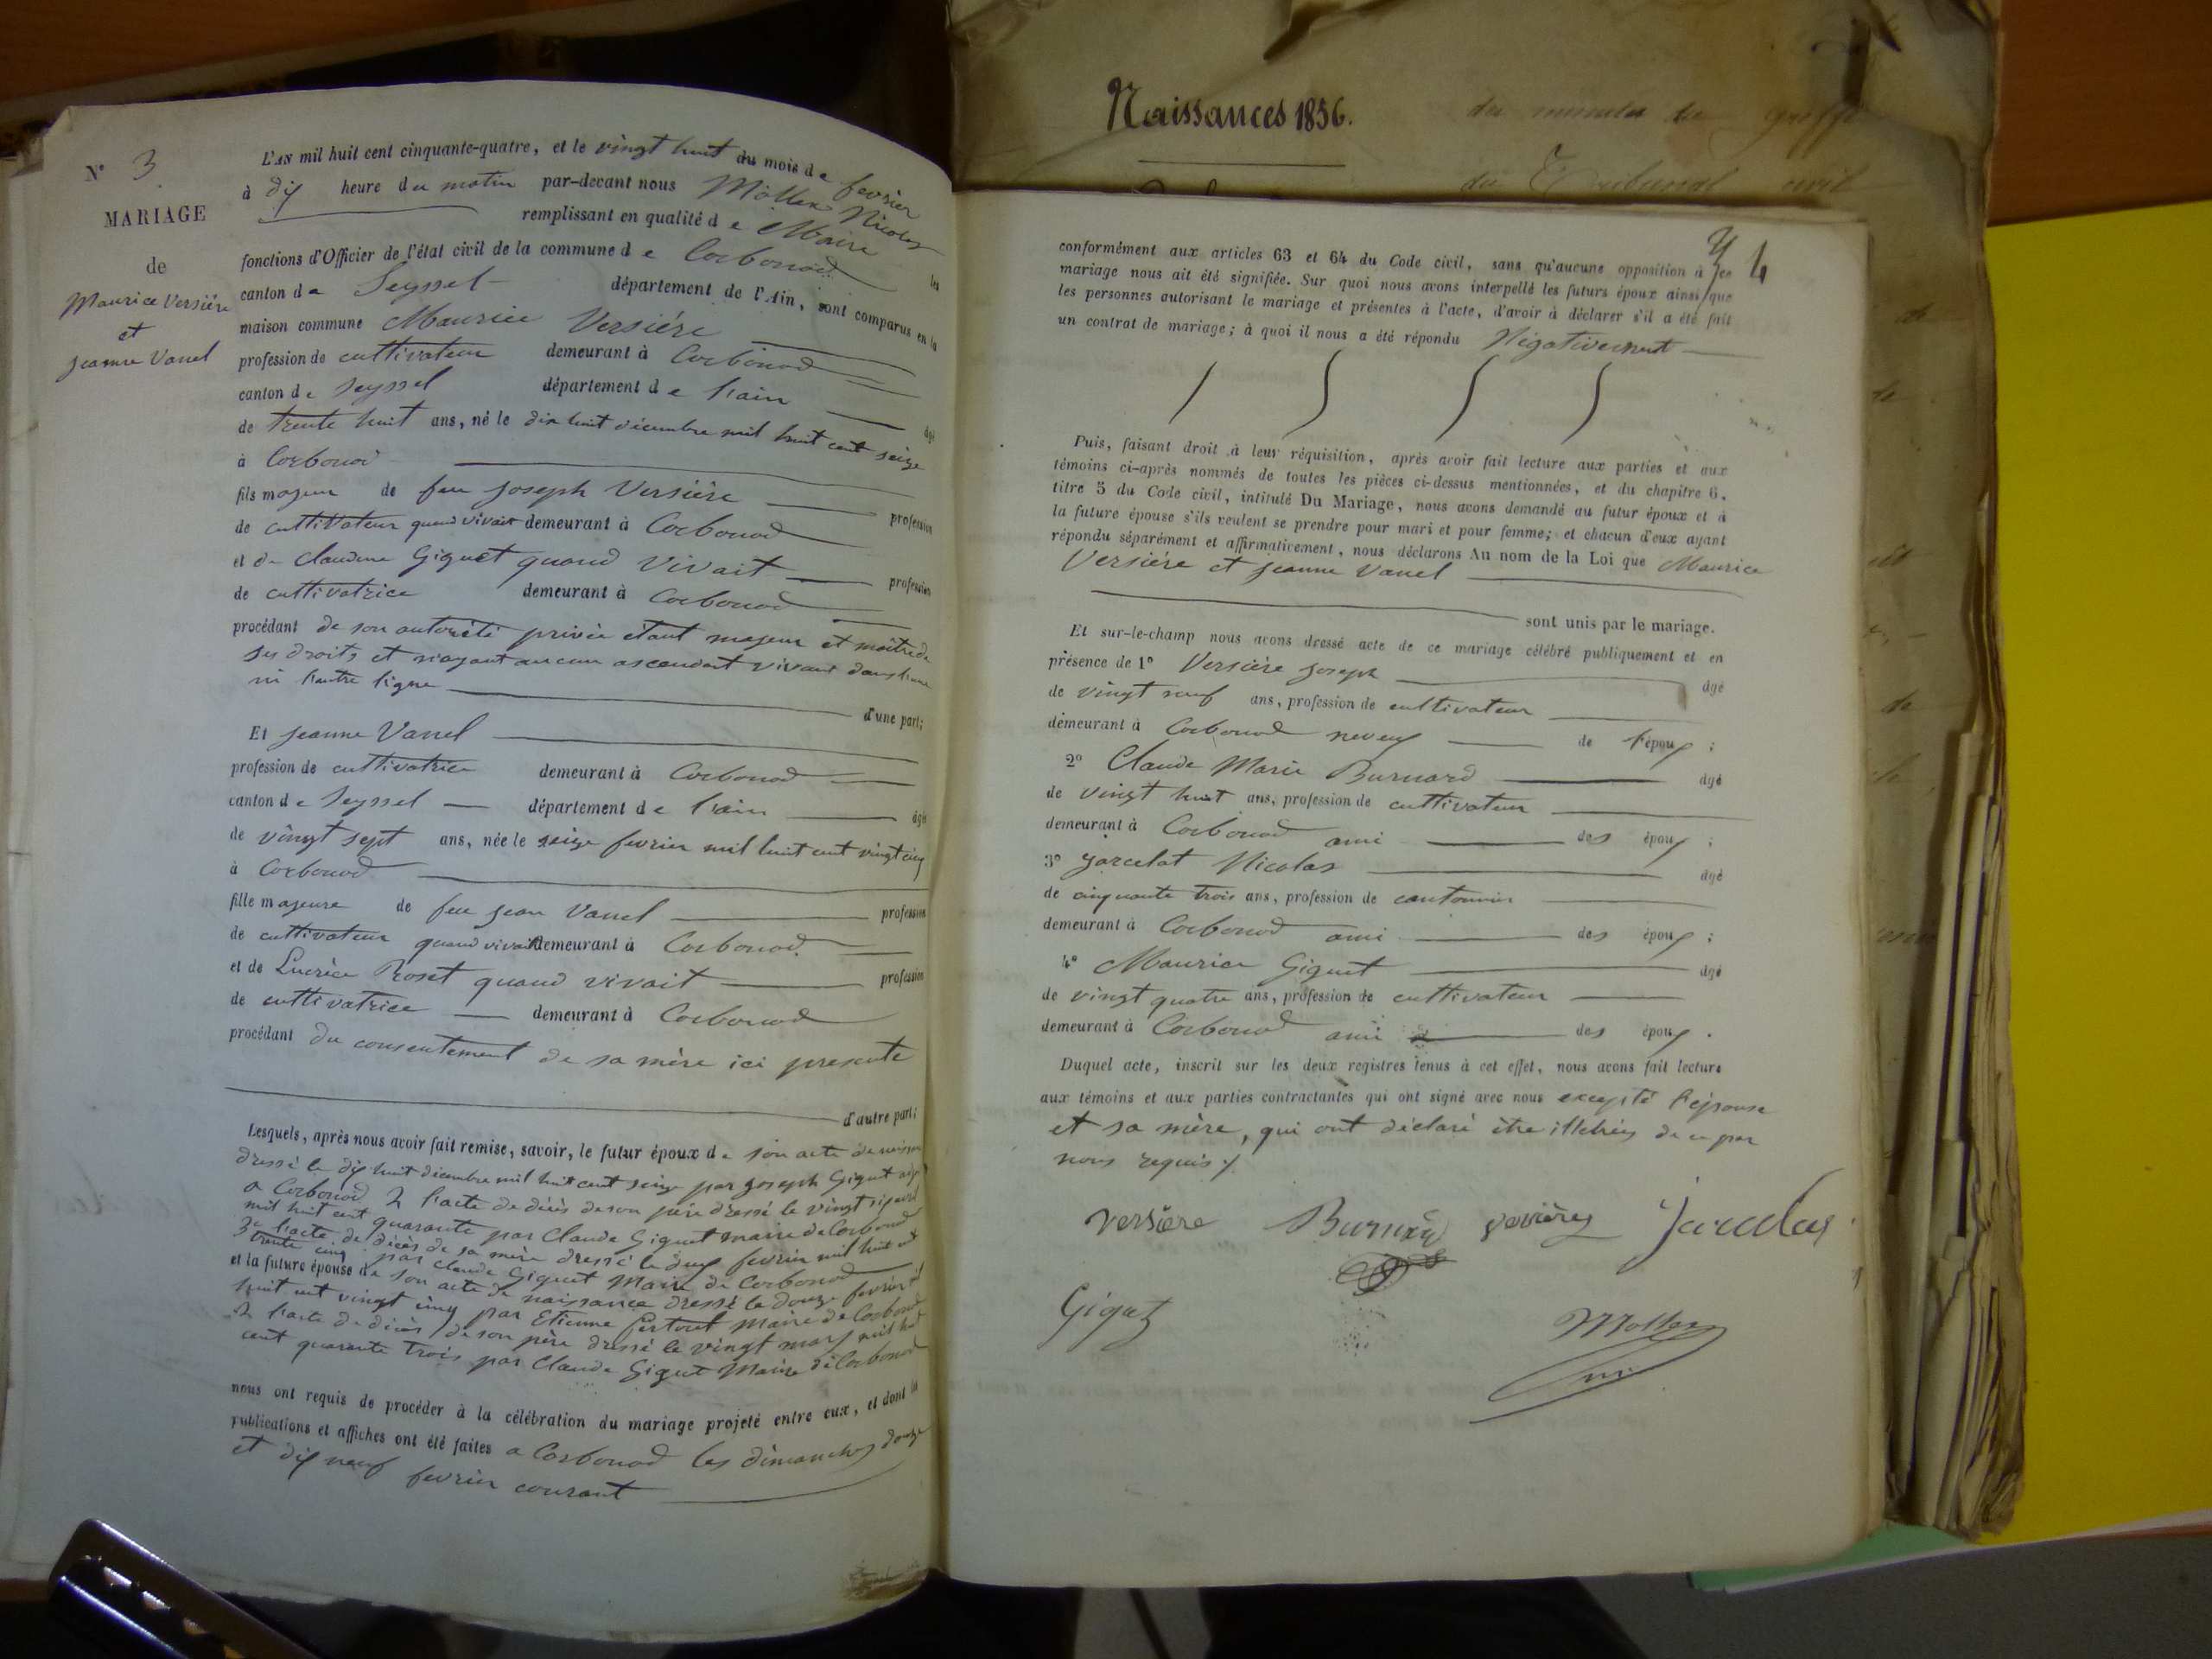 N° 3
MARIAGE
de
Maurice Versière
et
Jeanne Vanel
L'AN mil huit cent cinquante-quatre, et le vingt huit du mois de fevrier
à dix heure du matin par-devant nous Mollex Nicolas
remplissant en qualité de Maire les
fonctions d'Officier de l'état civil de la commune de Corbonod
canton de Seyssel département de l'Ain, sont comparus en la
maison commune Maurice Versiére
profession de cultivateur demeurant à Corbonod
canton de Seyssel département de l'ain âgé
de trente huit ans, né le dix huit décembre mil huit cent seize
à Corbonod
fils majeur de feu Joseph Versière profession
de cultivateur quand vivait demeurant à Corbonod
et de Claudine Giguet quand vivait profession
de cultivatrice demeurant à Corbonod
procédant de son autorité privée étant majeur et maître de
ses droits et n'ayant aucun ascendant vivant dans l'une
ni l'autre ligne d'une part;
Et Jeanne Vanel
profession de cultivatrice demeurant à Corbonod
canton de Seyssel département de l'ain âgée
de vingt sept ans, née le seize fevrier mil huit cent vingt cinq
à Corbonod
fille majeure de feu Jean Vanel profession
de cultivateur quand vivait demeurant à Corbonod
et de Lucrèce Roset quand vivait profession
de cultivatrice demeurant à Corbonod
procédant du consentement de sa mère ici presente
d'autre part;
Lesquels, après nous avoir fait remise, savoir, le futur époux de son acte de naissance
dressé le dix huit decembre mil huit cent seize par Joseph Giguet
a Corbonod 2 l'acte de décès de son père dressé le vingt six
mil huit cent quarante par Claude Giguet maire de Corbonod
3e l'acte de décès de sa mère dressé le deux fevrier mil huit cent
trente cinq par Claude Giguet Maire de Corbonod
et la future épouse de son acte de naissance dressé le douze fevrier mil
huit cent vingt cinq par Etienne Maire de Corbonod
2 l'acte de décès de son père dressé le vingt mars mil huit
cent quarante trois par Claude Giguet Maire de Corbonod
nous ont requis de procéder à la célébration du mariage projeté entre eux, et dont les
publications et affiches ont été faites a Corbonod les dimanches douze
et dix neuf fevrier courant
Naissances 1856.
du greffe
du Tribunal civil
4
conformément aux articles 63 et 64 du Code civil, sans qu'aucune opposition à ce
mariage nous ait été signifiée. Sur quoi nous avons interpellé les futurs époux ainsi que
les personnes autorisant le mariage et présentes à l'acte, d'avoir à déclarer s'il a été fait
un contrat de mariage; à quoi il nous a été répondu Négativement
Puis, faisant droit à leur réquisition, après avoir fait lecture aux parties et aux
témoins ci-après nommés de toutes les pièces ci-dessus mentionnées, et du chapitre 6,
titre 5 du Code civil, intitulé Du Mariage, nous avons demandé au futur époux et à
la future épouse s'ils veulent se prendre pour mari et pour femme; et chacun d'eux ayant
répondu séparément et affirmativement, nous déclarons Au nom de la Loi que Maurice
Versiére et Jeanne Vanel
sont unis par le mariage.
Et sur-le-champ nous avons dressé acte de ce mariage célébré publiquement et en
présence de 1° Versière Joseph âgé
de vingt neuf ans, profession de cultivateur
demeurant à Corbonod neveu de l'époux ;
2° Claude Marie Burnard âgé
de vingt huit ans, profession de cultivateur
demeurant à Corbonod ami des époux ;
3° Jarcelat Nicolas âgé
de cinquante trois ans, profession de cantonnier
demeurant à Corbonod ami des époux ;
4° Maurice Giguet âgé
de vingt quatre ans, profession de cultivateur
demeurant à Corbonod ami des époux .
Duquel acte, inscrit sur les deux registres tenus à cet effet, nous avons fait lecture
aux témoins et aux parties contractantes qui ont signé avec nous excepté l'épouse
et sa mère, qui ont déclaré être illetrées de ce par
nous requis
Versiere Burnard
Giguet Mollex